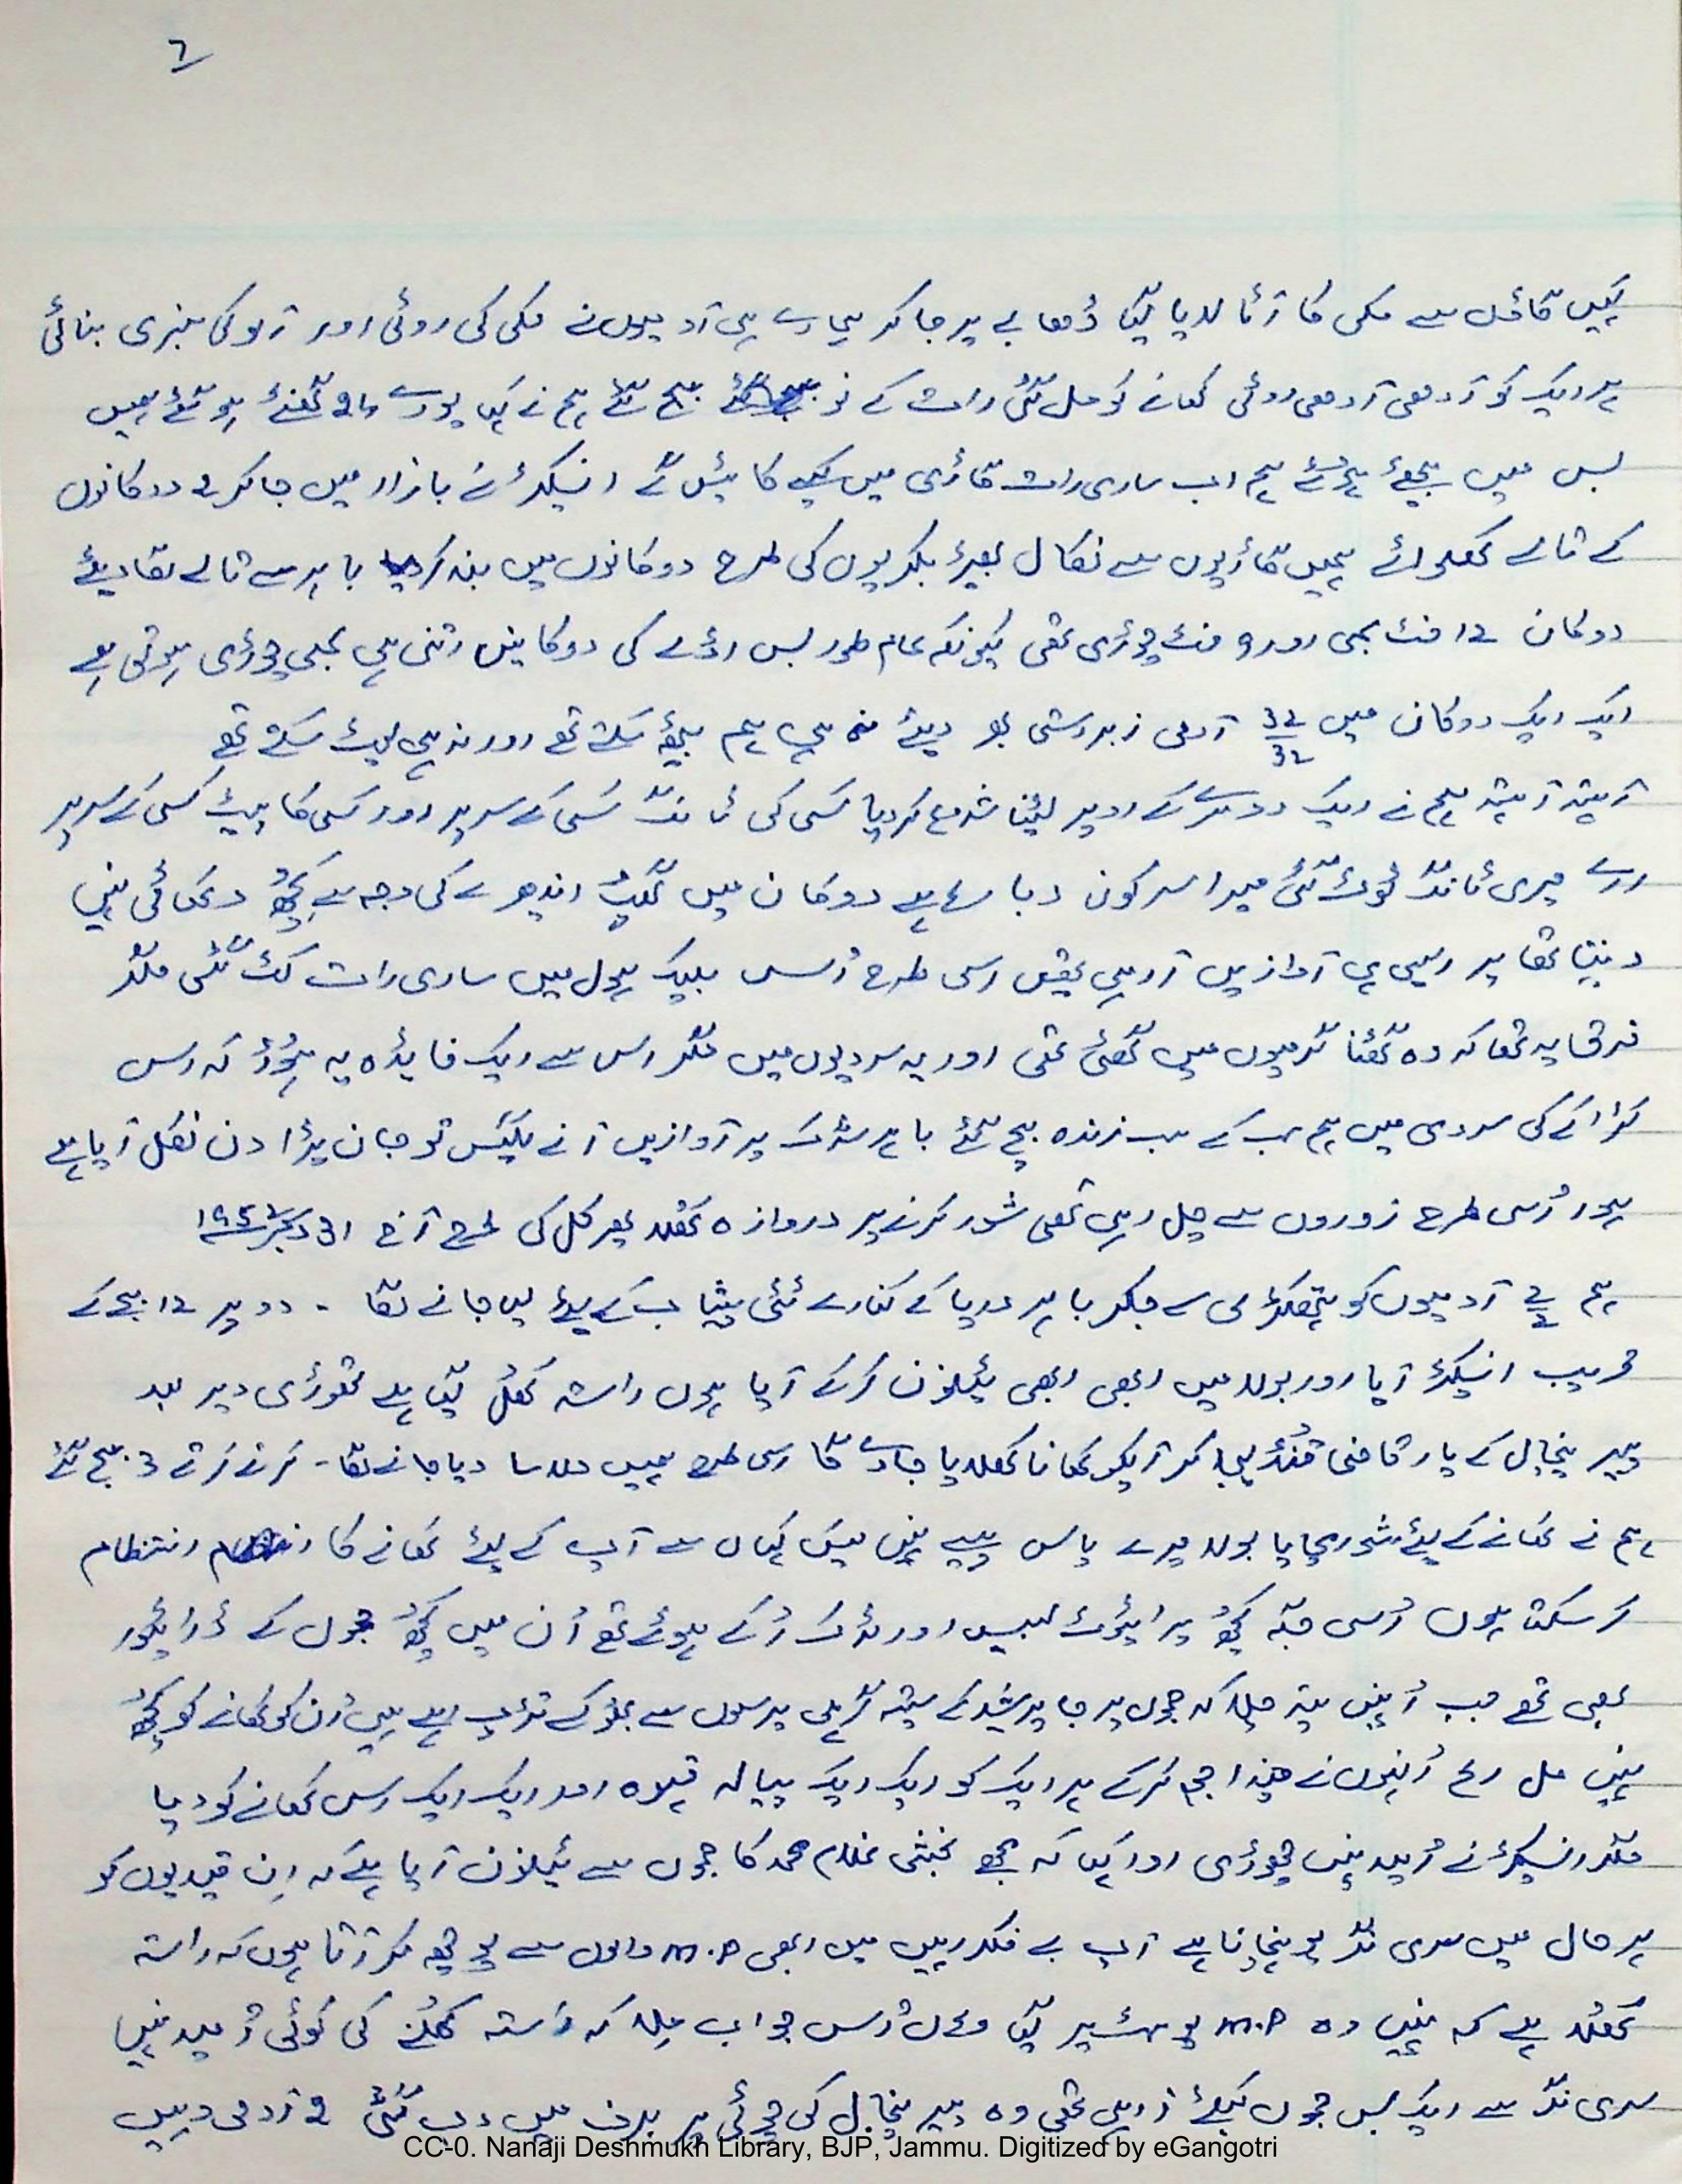 7
کہیں گاؤں سے مکی کا آٹا لایا گیا ڈھابے پر جا کر ہمارے ہی آدمیوں نے مکی کی روٹی اور آلو کی سبزی بنائی
ہر ایک کو آدھی آدھی روٹی کھانے کو مل گئی رات کے نو بج گئے ہم نے کہا پورے 24 گھنٹے ہو گئے ہمیں
بس میں بیٹھے ہوئے ہم اب ساری رات گاڑی میں کیسے کاٹیں گے انسپکٹر نے بازار میں جا کر 2 دوکانوں
کے تالے کھلوائے ہمیں گاڑیوں سے نکال بھیڑ بکریوں کی طرح دوکانوں میں بند کر دیا باہر سے تالے لگا دیئے
دوکان 12 فٹ لمبی اور 9 فٹ چوڑی تھی کیونکہ عام طور بس اڈے کی دوکانیں اتنی ہی لمبی چوڑی ہوتی ہے
ایک ایک دوکان میں 32 32 آدمی زبردستی بھر دیئے نہ ہی ہم بیٹھ سکتے تھے اور نہ ہی لیٹ سکتے تھے
آہستہ آہستہ ہم نے ایک دوسرے کے اوپر لیٹنا شروع کر دیا کسی کی ٹانگ کسی کے سر پر اور کسی کا پیٹ کسی کے سر پر
ارے میری ٹانگ ٹوٹ گئی میرا سر کون دبا رہا ہے دوکان میں گھپ اندھیرے کی وجہ سے کچھ دکھائی نہیں
دیتا تھا پر ایسی ہی آوازیں آ رہی تھیں اسی طرح اُس بلیک ہول میں ساری رات کٹ گئی مگر
فرق یہ تھا کہ وہ گھٹنا گرمیوں میں گھٹی تھی اور یہ سردیوں میں مگر اس سے ایک فایدہ یہ ہوا کہ اس
کڑاکے کی سردی میں ہم سب کے سب زندہ بچ گئے باہر سڑک پر آوازیں آنے لگیں تو جان پڑا دن نکل آیا ہے
ہوا اُسی طرح زوروں سے چل رہی تھی شور کرنے پر دروازہ کھلا پھر کل کی طرح آج 31 دسمبر ۱۹۵۲
ہم 2 2 آدمیوں کو ہتھکڑی سے جکڑ باہر دریا کے کنارے ٹٹی پیشاب کے لیئے لیا جانے لگا - دوپہر 12 بجے کے
قریب انسپکٹر آیا اور بولا میں ابھی ابھی ٹیلیفون کرکے آیا ہوں راستہ کھل گیا ہے تھوڑی دیر بعد
پیر پنچال کے پار قاضی قنڈ لیجا کر آپکو کھانا کھلایا جاوے گا اسی طرح ہمیں دلاسا دیا جانے لگا - کرتے کرتے 3 بج گئے
ہم نے کھانے کے لیئے شور مچایا بولا میرے پاس پیسے نہیں میں کہاں سے آپ کے لیئے کھانے کا انتظام
کر سکتا ہوں اُسی جگہ کچھ پرائیوٹ بسیں اور ٹرک رُکے ہوئے تھے اُن میں کچھ جموں کے ڈرائیور
بھی تھے جب اُنہیں پتہ چلا کہ جموں پرجا پریشد کے ستیہ گرہی پرسوں سے بھوکے تڑپ رہے ہیں اُن کو کھانے کو کچھ
نہیں مل رہا اُنہوں نے چندا جمع کرکے ہر ایک کو ایک ایک پیالہ قہوہ اور ایک ایک رس کھانے کو دیا
مگر انسپکٹر نے اُمید نہیں چھوڑی اور کہا کہ مجھے بخشی غلام محمد کا جموں سے ٹیلیفون آیا ہے کہ اِن قیدیوں کو
ہر حال میں سری نگر پہنچانا ہے آپ بے فکر رہیں میں ابھی M.P والوں سے پوچھ کر آتا ہوں کہ راستہ
کھلا ہے کہ نہیں وہ M.P پوسٹ پر گیا وہاں اُس جواب ملا کہ راستہ کھلنے کی کوئی اُمید نہیں
سری نگر سے ایک بس جموں کیلئے آ رہی تھی وہ پیر پنچال کی چوٹی پر برف میں دب گئی 9 آدمی وہیں
CC-0. Nanaji Deshmukh Library, BJP, Jammu. Digitized by eGangotri